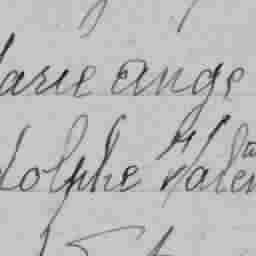 Marie ange
dolphe Valen